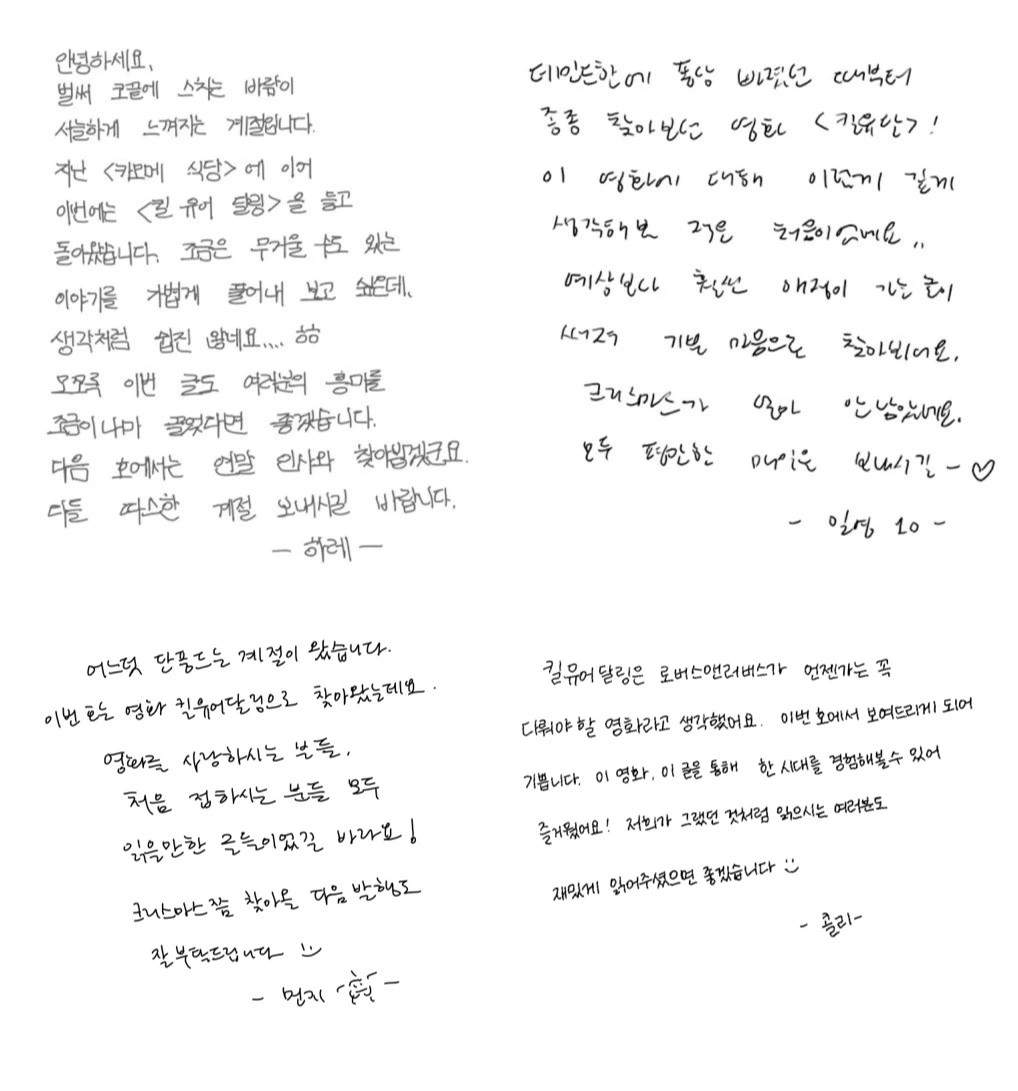 안녕하세요.
벌써 코끝에 스치는 바람이
서늘하게 느껴지는 계절입니다.
지난 <카모메 식당>에 이어
이번에는 <킬 유어 달링>을 들고
돌아왔습니다. 조금은 무거울 수도 있는
이야기를 가볍게 풀어내 보고 싶은데,
생각처럼 쉽진 않네요.... ㅎㅎ
모쪼록 이번 글도 여러분의 흥미를
조금이나마 끌었다면 좋겠습니다.
다음 호에서는 연말 인사와 찾아뵙겠군요.
다들 따스한 계절 보내시길 바랍니다.
- 하레 -
데인드한에 퐁당 빠졌던 때부터
종종 찾아보던 영화 <킬유달>!
이 영화에 대해 이렇게 길게
생각해본 적은 처음이었네요..
예상보다 훨씬 애정이 가는 글이
써져 기쁜 마음으로 찾아보내요.
크리스마스가 얼마 안 남았네요.
모두 평안한 매일을 보내시길 ~ ♡
- 일영 10 -
어느덧 단풍드는 계절이 왔습니다.
이번 호는 영화 킬유어달링으로 찾아왔는데요.
영화를 사랑하시는 분들,
처음 접하시는 분들 모두
읽을만한 글들이었길 바라요!
크리스마스쯤 찾아올 다음 발행도
잘 부탁드립니다 :)
- 먼지 -
킬유어달링은 로버스앤러버스가 언젠가는 꼭
다뤄야 할 영화라고 생각했어요. 이번 호에서 보여드리게 되어
기쁩니다. 이 영화, 이 글을 통해 한 시대를 경험해볼 수 있어
즐거웠어요! 저희가 그랬던 것처럼 읽으시는 여러분도
재밌게 읽어주셨으면 좋겠습니다 :)
- 콜리 -